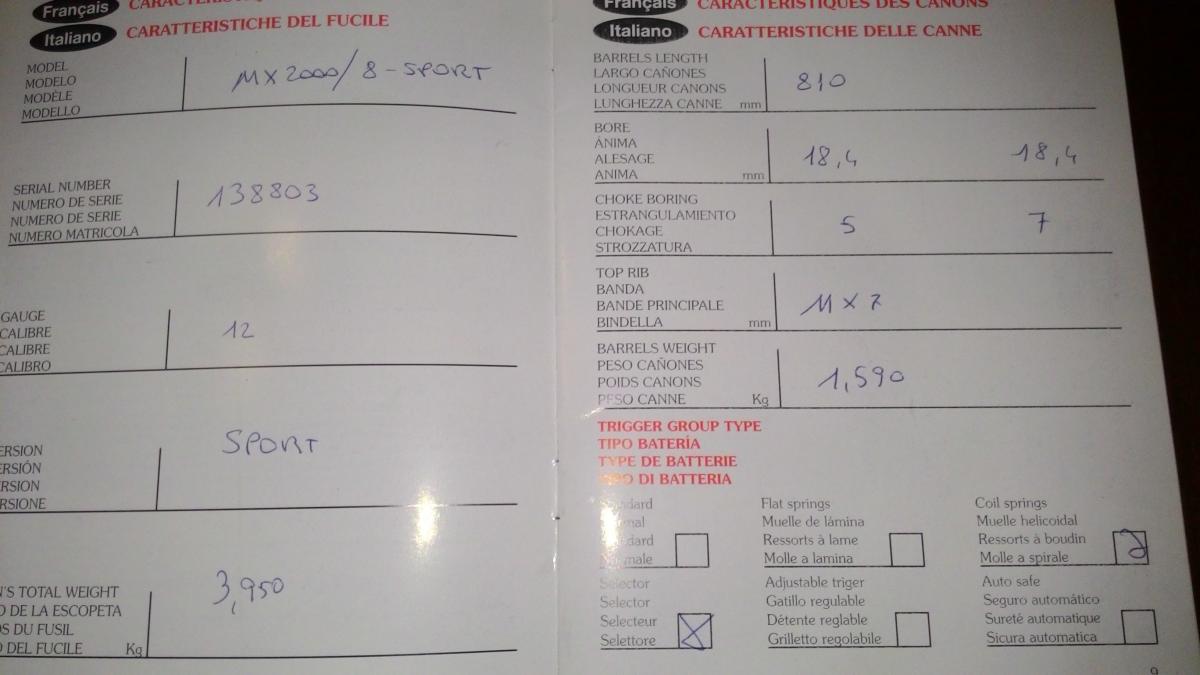 Français
Italiano
CARATTERISTICHE DEL FUCILE
MODEL
MODELO
MODÈLE
MODELLO
MX2000/8-SPORT
SERIAL NUMBER
NUMERO DE SERIE
NUMERO DE SERIE
NUMERO MATRICOLA
138803
GAUGE
CALIBRE
CALIBRE
CALIBRO
12
ERSION
ERSIÓN
ERSION
RSIONE
SPORT
N'S TOTAL WEIGHT
O DE LA ESCOPETA
OS DU FUSIL
O DEL FUCILE Kg
3,950
Français CARACTERISTIQUES DES CANONS
Italiano CARATTERISTICHE DELLE CANNE
BARRELS LENGTH
LARGO CAÑONES
LONGUEUR CANONS
LUNGHEZZA CANNE mm
810
BORE
ÁNIMA
ALESAGE
ANIMA mm
18,4 18,4
CHOKE BORING
ESTRANGULAMIENTO
CHOKAGE
STROZZATURA
5 7
TOP RIB
BANDA
BANDE PRINCIPALE
BINDELLA mm
11 x 7
BARRELS WEIGHT
PESO CAÑONES
POIDS CANONS
PESO CANNE Kg
1,590
TRIGGER GROUP TYPE
TIPO BATERÍA
TYPE DE BATTERIE
DI BATTERIA
Flat springs
Muelle de lámina
Ressorts à lame
Molle a lamina
Coil springs
Muelle helicoidal
Ressorts à boudin
Molle a spirale
Selector
Selector
Selecteur
Selettore
X
Adjustable triger
Gatillo regulable
Détente reglable
Grilletto regolabile
Auto safe
Seguro automático
Sureté automatique
Sicura automatica
9